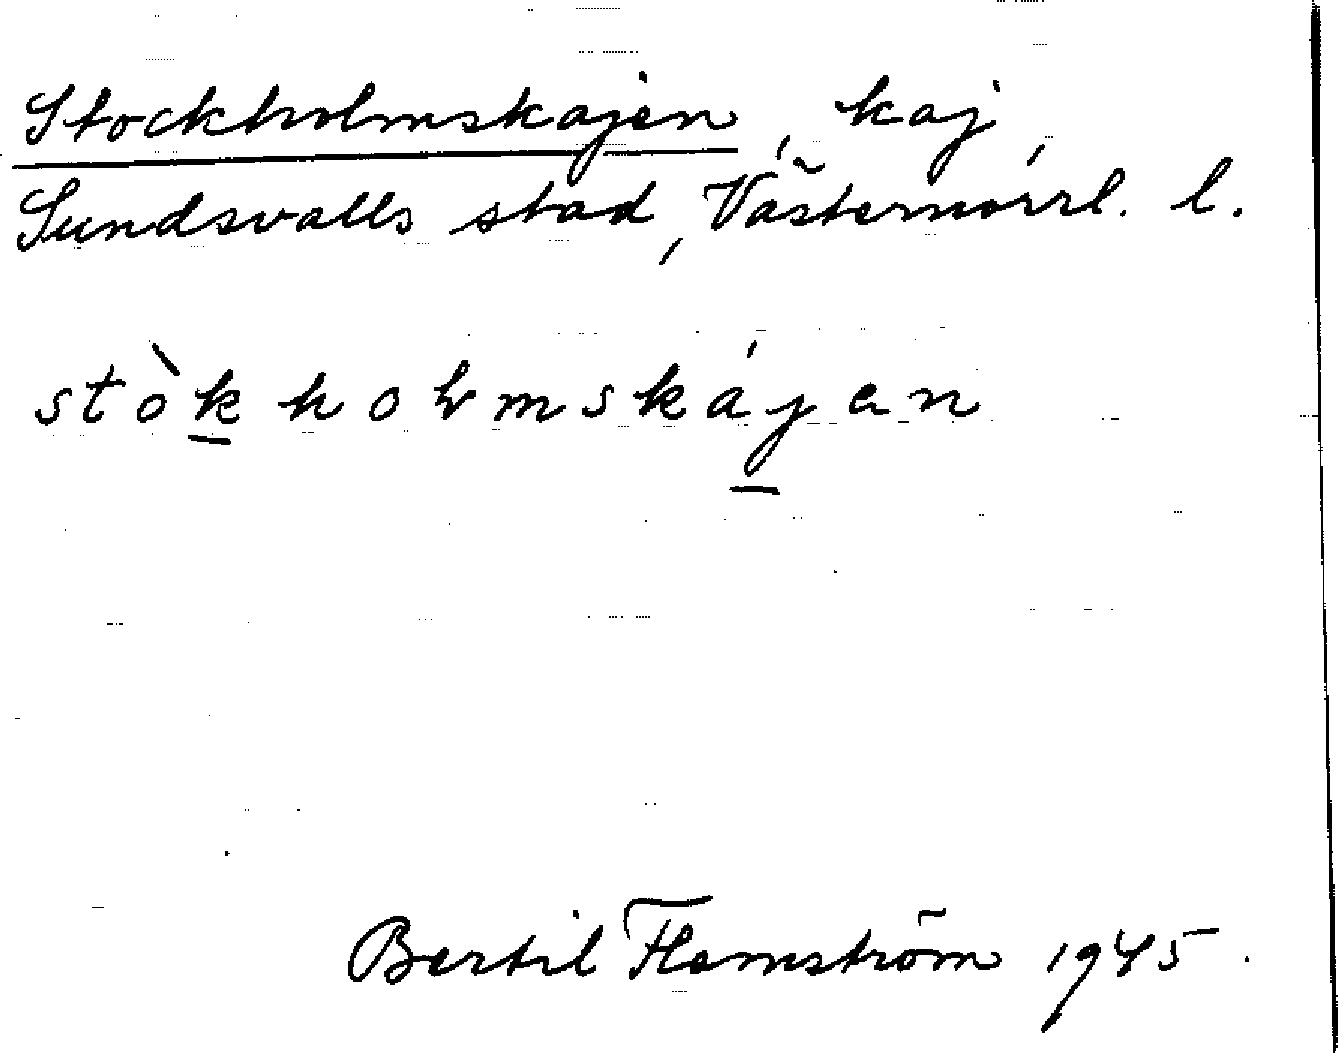 Stockholmskajen, kaj
Sundsvalls stad, Västernorrl. l.
stòkholmskájen
Bertil Flemström 1945.